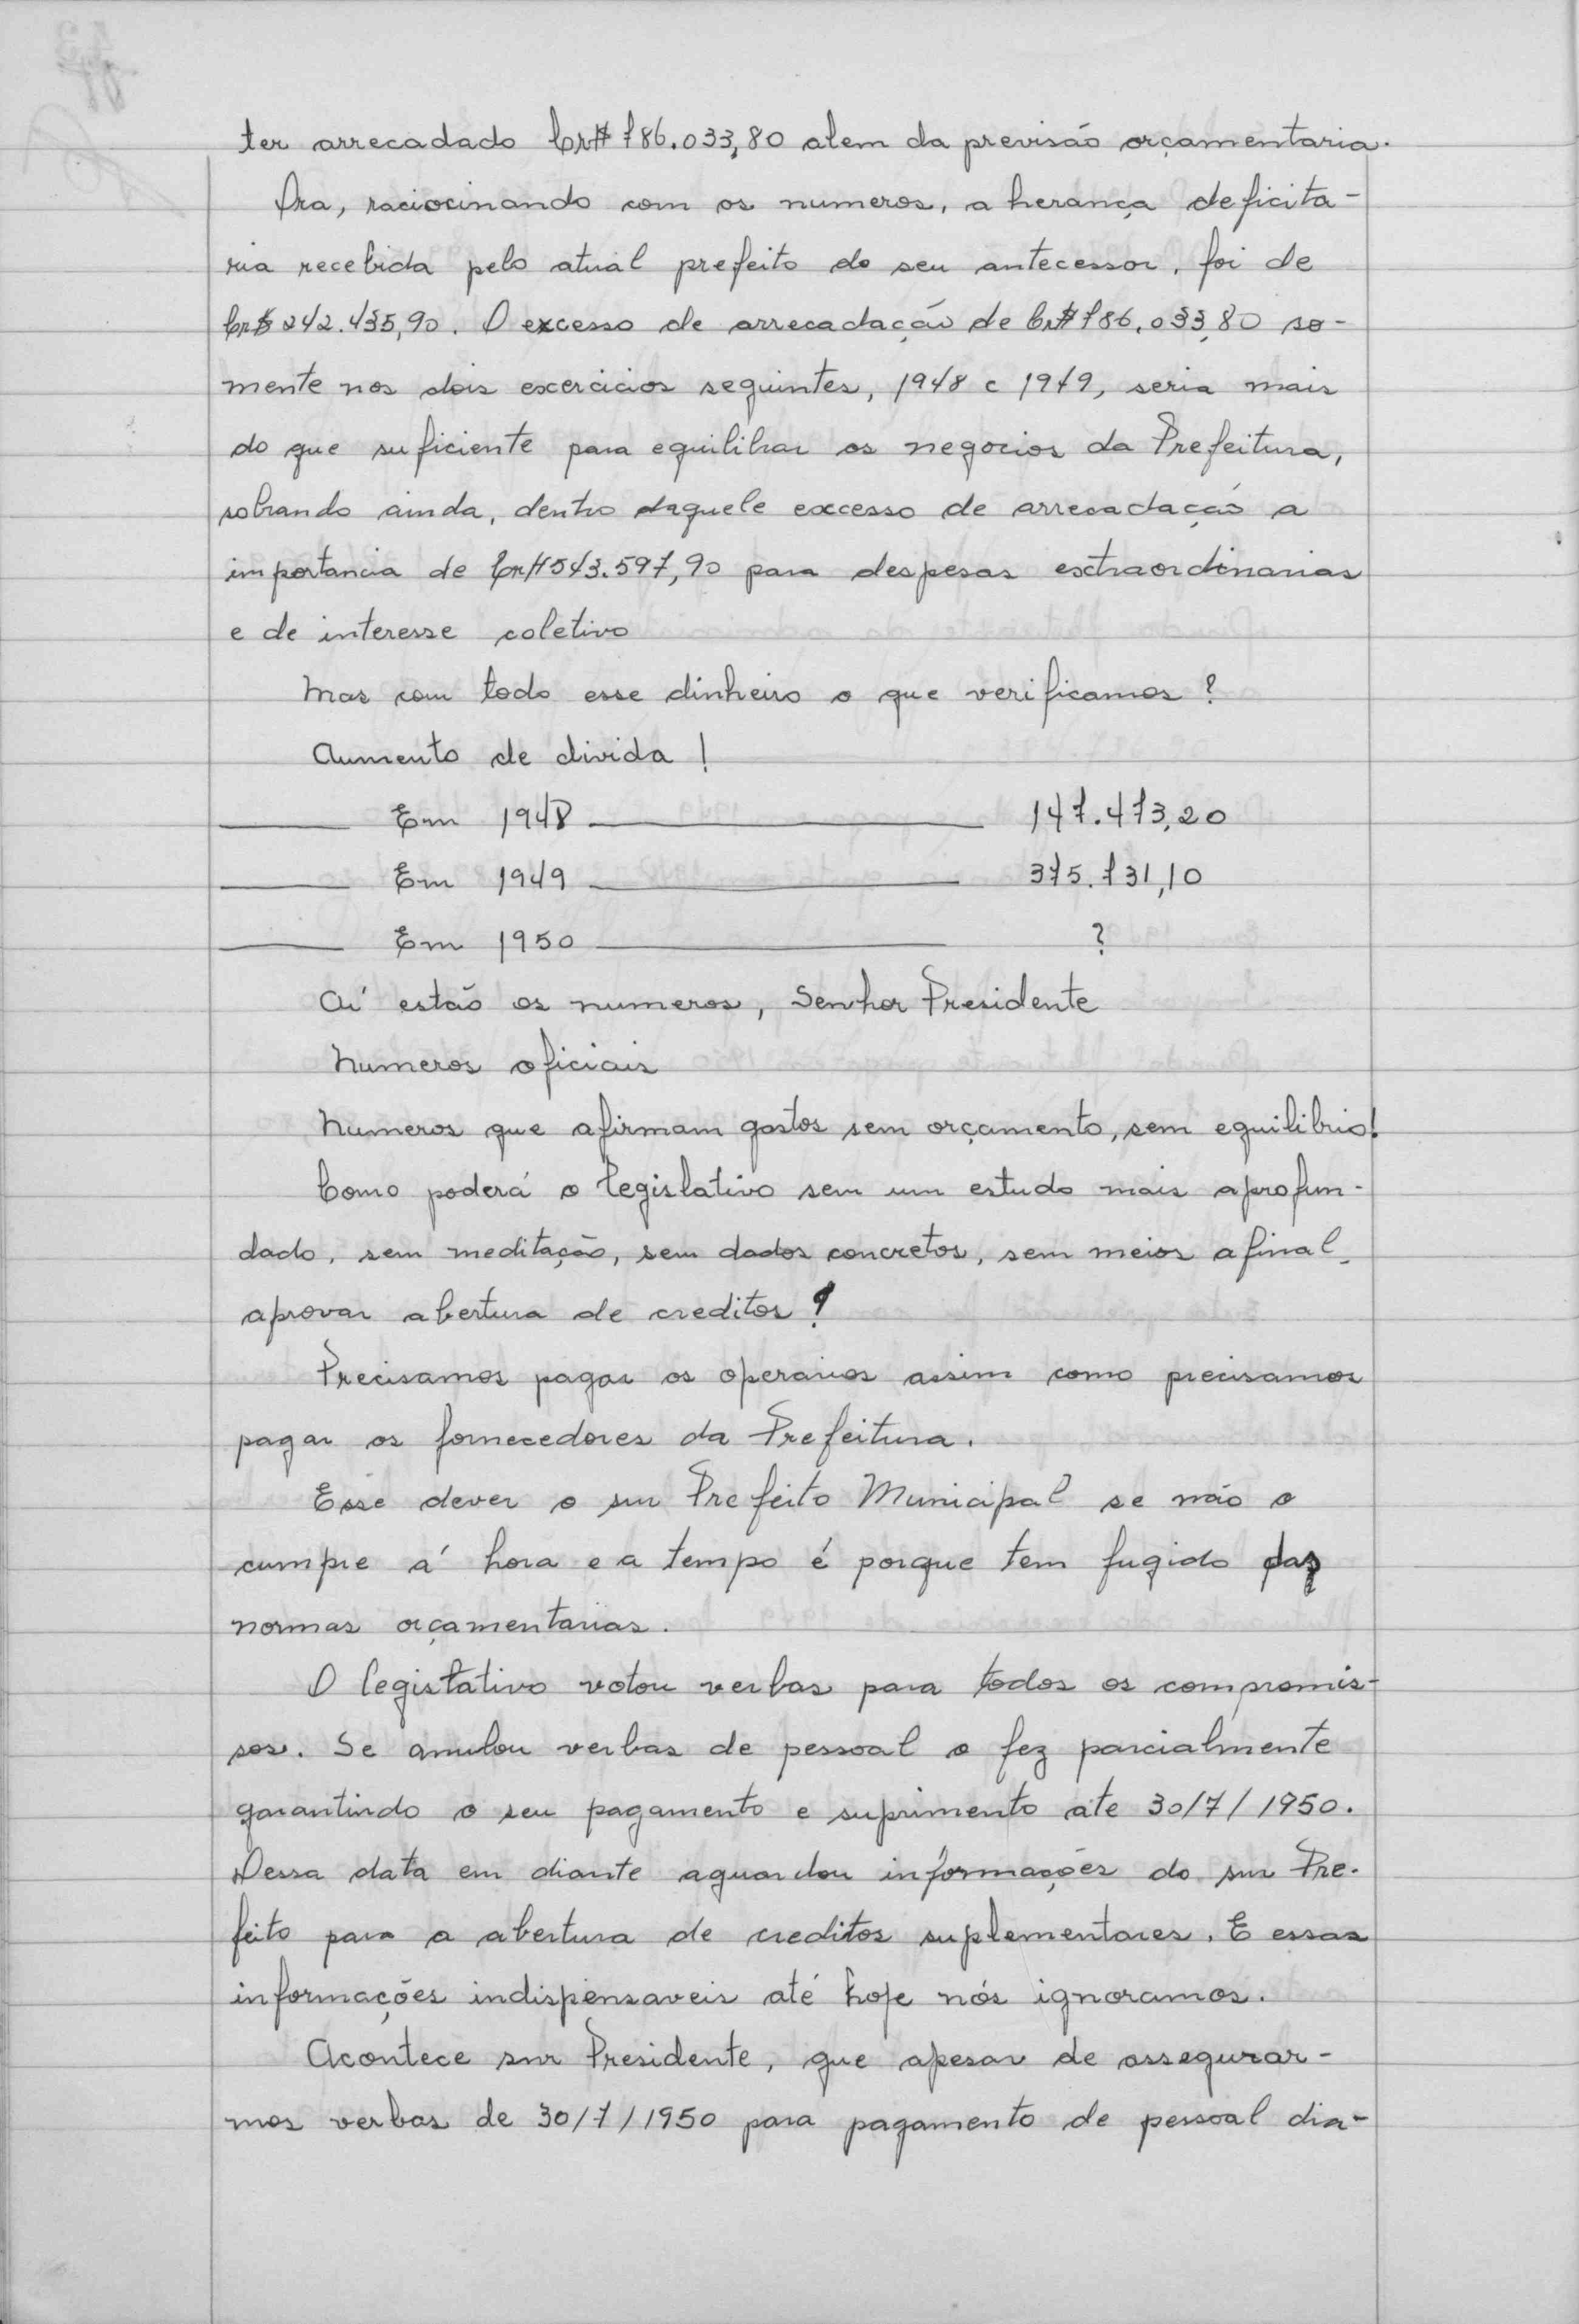 ter arrecadado Cr$ 786.033,80 alem da previsão orçamentaria.
Ora, raciocinando com os numeros, a herança deficita-
ria recebida pelo atual prefeito do seu antecessor, foi de
Cr$ 242.435,90. O excesso de arrecadação de Cr$ 786.033,80 so-
mente nos dois exercicios seguintes, 1948 e 1949, seria mais
do que suficiente para equilibrar os negocios da Prefeitura,
sobrando ainda, dentro daquele excesso de arrecadação a
importancia de Cr$ 543.597,90 para despesas extraordinarias
e de interesse coletivo
Mas com todo esse dinheiro o que verificamos?
Aumento de divida!
Em 1948 147.473,20
Em 1949 375.731,10
Em 1950 ?
Aí estão os numeros, Senhor Presidente
Numeros oficiais
Numeros que afirmam gastos sem orçamento, sem equilibrio!
Como poderá o legislativo sem um estudo mais aprofun-
dado, sem meditação, sem dados concretos, sem meios afinal,
aprovar abertura de creditos?
Precisamos pagar os operarios assim como precisamos
pagar os fornecedores da Prefeitura.
Esse dever o snr Prefeito Municipal se não o
cumpre á hora e a tempo é porque tem fugido das
normas orçamentarias.
O legislativo votou verbas para todos os compromis-
sos. Se anulou verbas de pessoal o fez parcialmente
garantindo o seu pagamento e suprimento ate 30/7/1950.
Dessa data em diante aguardou informações do snr Pre-
feito para a abertura de creditos suplementares. E essas
informações indispensaveis até hoje nós ignoramos.
Acontece snr Presidente, que apesar de assegurar-
mos verbas de 30/7/1950 para pagamento de pessoal dia-